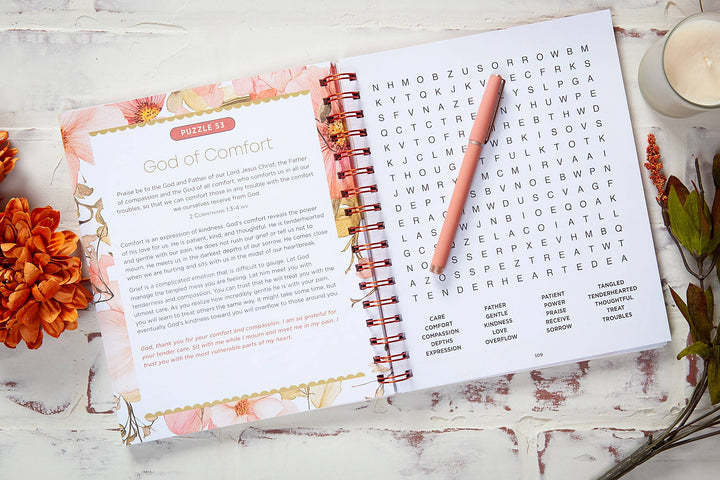 PUZZLE 53
God of Comfort
Praise be to the God and Father of our Lord Jesus Christ, the Father
of compassion and the God of all comfort, who comforts us in all our
troubles, so that we can comfort those in any trouble with the comfort
we ourselves receive from God.
2 CORINTHIANS 1:3–4 NIV
Comfort is an expression of kindness. God's comfort reveals the power
of his love for us. He is patient, kind, and thoughtful. He is tenderhearted
and gentle with our pain. He does not rush our grief or tell us not to
mourn. He meets us in the darkest depths of our sorrow. He comes close
when we are hurting and sits with us in the midst of our heartbreak.
Grief is a complicated emotion that is difficult to gauge. Let God
manage the tangled mess you are feeling. Let him meet you with
tenderness and compassion. You can trust that he will treat you with the
utmost care. As you realize how incredibly gentle he is with your pain,
you will learn to treat others the same way. It might take some time, but
eventually God's kindness toward you will overflow to those around you.
God, thank you for your comfort and compassion. I am so grateful for
your tender care. Sit with me while I mourn and meet me in my pain. I
trust you with the most vulnerable parts of my heart.
N H M O B Z U S O R R O W B M
K Y T Q K J K V E C F R K S
S F V N A Z E Y S L P G A
Q C T C T R E N Y H U W P E
K V T O F R E B T H W D
K J C M W B K I S O V S
T H O U G T F U L K T O T K
J W M R Y M C M I R V A A I
D E P T
E R A C
O S S E R P X E V H M B Q
A Z O S S P E Z T R E A T W T
T E N D E R H E A R T E D E A
CARE
COMFORT
COMPASSION
DEPTHS
EXPRESSION
FATHER
GENTLE
KINDNESS
LOVE
OVERFLOW
PATIENT
POWER
PRAISE
RECEIVE
SORROW
TANGLED
TENDERHEARTED
THOUGHTFUL
TREAT
TROUBLES
109